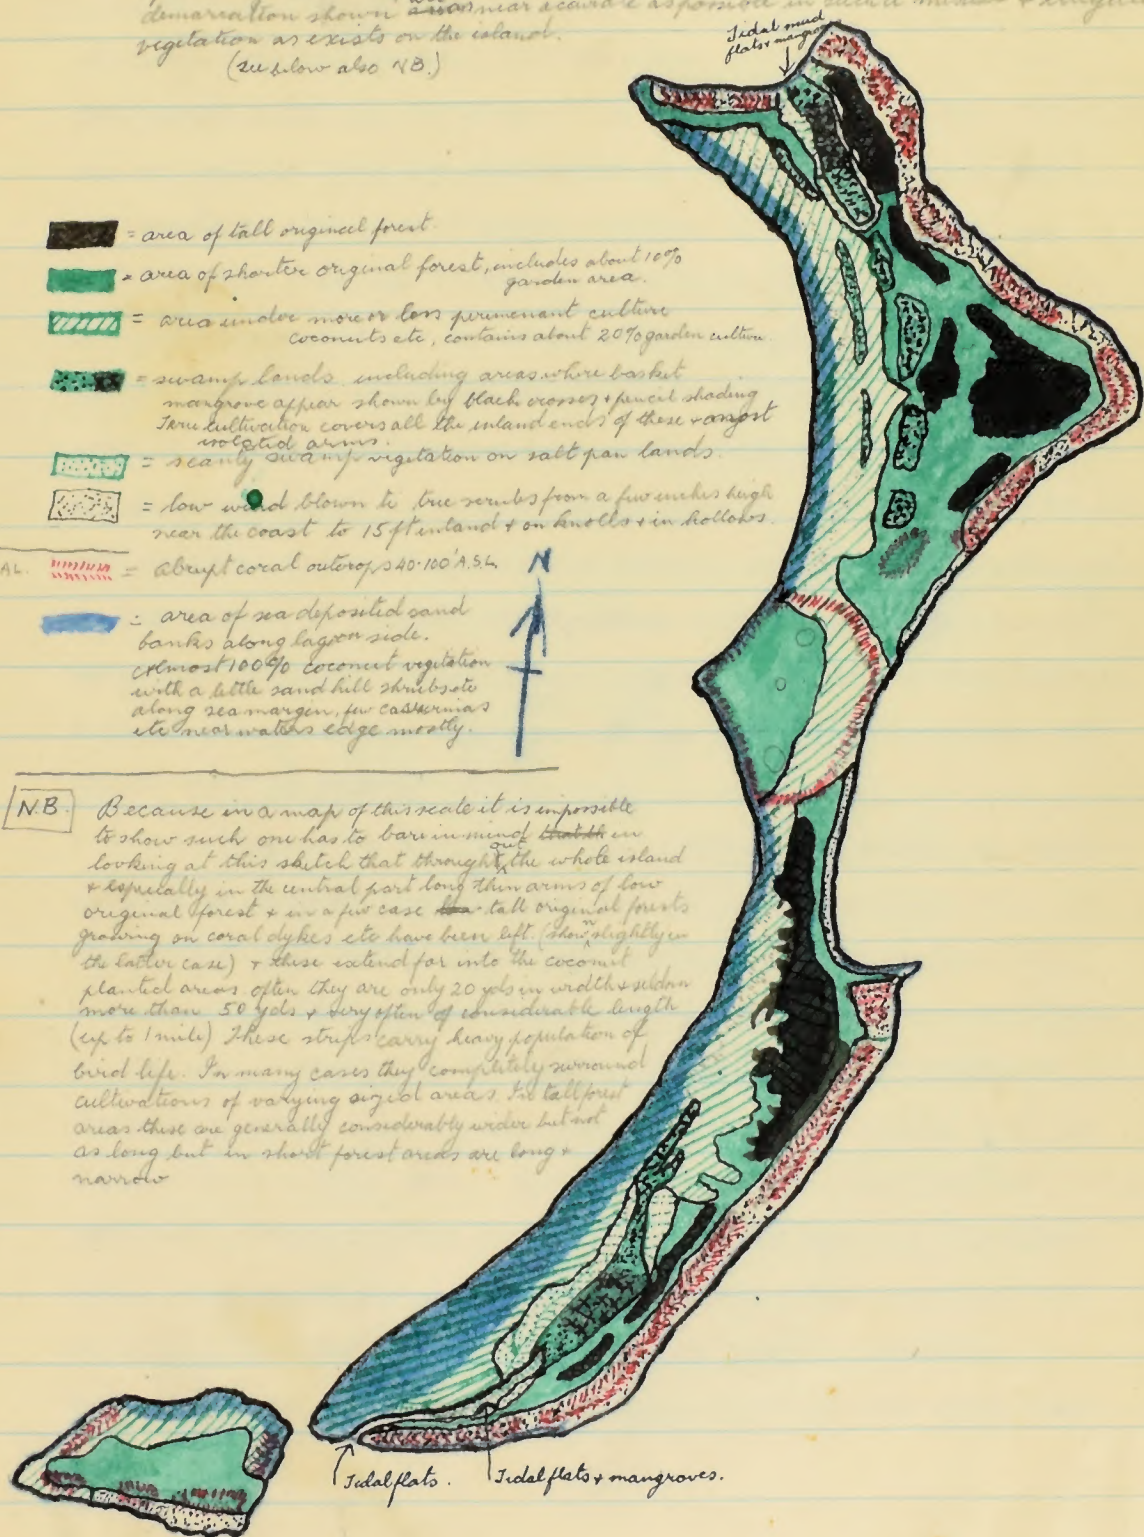 demarcation shown are as near accurate as possible in such a
vegetation as exists on the island.
(see below also NB.)
Tidal mud
flats & mangroves
= area of tall original forest.
= area of shorter original forest, includes about 10%
garden area.
= area under more or less permenant culture
coconuts etc, contains about 20% garden culture.
= swamp lands including areas where basket
mangrove appear shown by black crosses & pencil shading
Taru cultivation covers all the inland ends of these & most
isolated arms.
= scanty swamp vegetation on salt pan lands.
= low wind blown to true scrubs from a few inches high
near the coast to 15 ft inland & on knolls & in hollows.
AL. = abrupt coral outcrops 40-100' A.S.L.
N
= area of sea deposited sand
banks along lagoon side.
Almost 100% coconut vegetation
with a little sand hill shrubs etc
along sea margin, few casurinas
etc near waters edge mostly.
N.B. Because in a map of this scale it is impossible
to show such one has to bare in mind that th in
looking at this sketch that throughout the whole island
& especially in the central part long thin arms of low
original forest & in a few case tall original forests
growing on coral dykes etc have been left. (shown slightly in
the latter case) & these extend far into the coconut
planted areas often they are only 20 yds in width & seldom
more than 50 yds & very often of considerable length
(up to 1 mile) These strips carry heavy population of
bird life. In many cases they completely surround
cultivations of varying sized areas. In tall forest
areas these are generally considerably wider but not
as long but in short forest areas are long &
narrow
Tidal flats.
Tidal flats & mangroves.